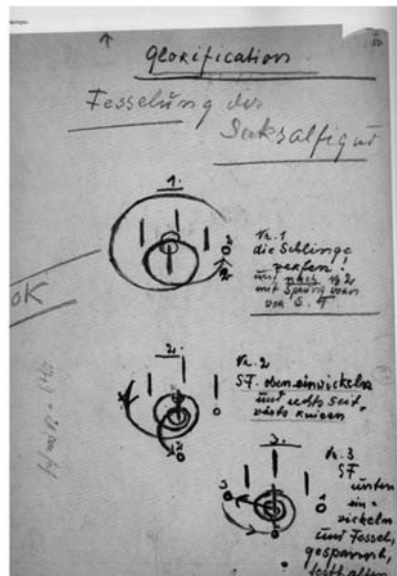 Glorification
Fesselung der
Saksalfigur
1.
Nr. 1
die Schlinge
werfen!
und nach
mit Sprung
von S. F.
OK
2.
Nr. 2
SF. oben einwickeln
und rechts seit-
wärts knieen
3.
Nr. 3
SF
unten
ein-
wickeln
und Fessel,
gespannt,
festhalten